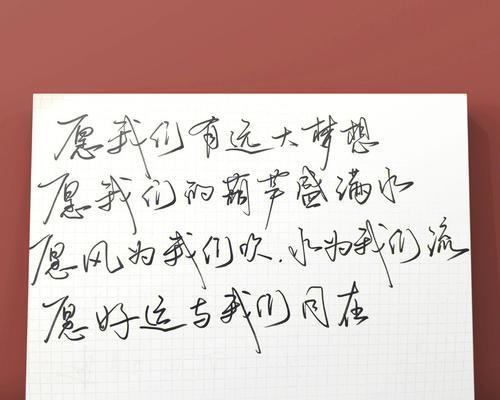 愿我们有远大梦想
愿我们的葫芦盛满水
愿风为我们吹.水为我们流
愿好运与我们同在